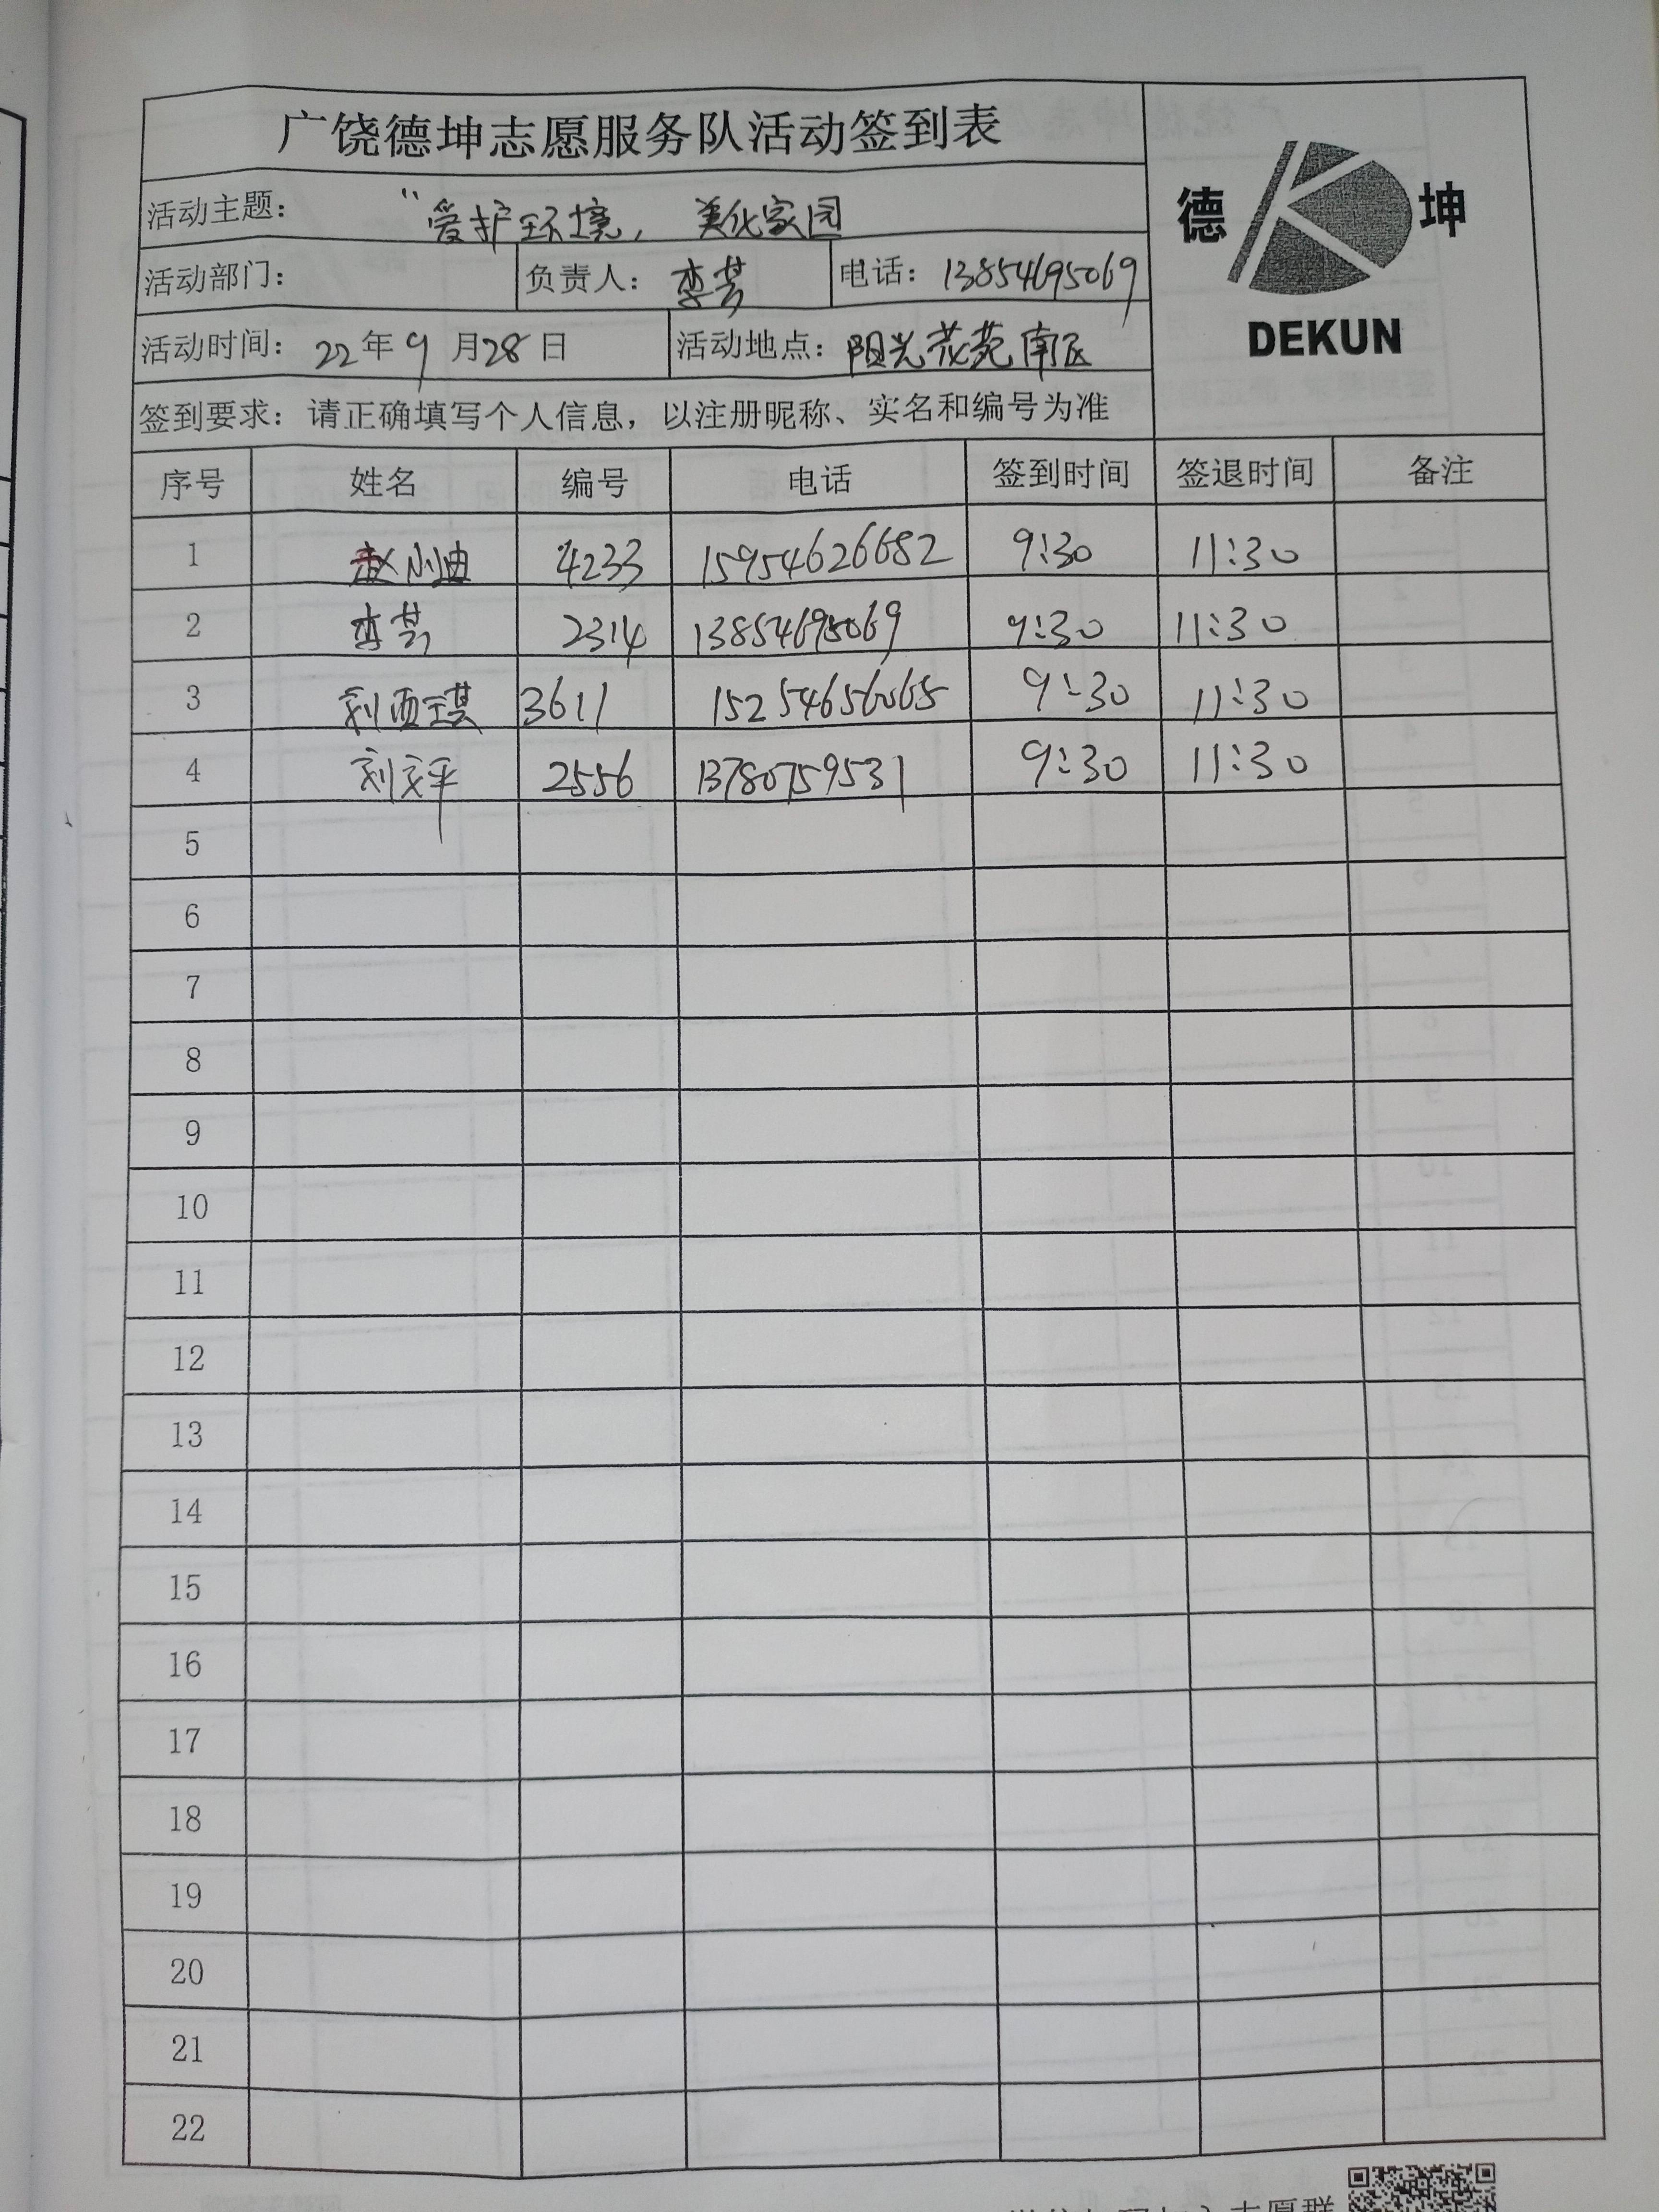 广饶德坤志愿服务队活动签到表
德 坤
DEKUN
活动主题： “爱护环境， 美化家园
活动部门： 负责人： 李芸 电话： 13854695069
活动时间： 22年9月28日 活动地点： 阳光花苑南区
签到要求：请正确填写个人信息，以注册昵称、实名和编号为准
序号 姓名 编号 电话 签到时间 签退时间 备注
1 赵小迪 4233 15954626682 9:30 11:30
2 李芸 2314 13854695069 9:30 11:30
3 刘 3611 15254656065 9:30 11:30
4 刘文平 2556 13780759531 9:30 11:30
5
6
7
8
9
10
11
12
13
14
15
16
17
18
19
20
21
22